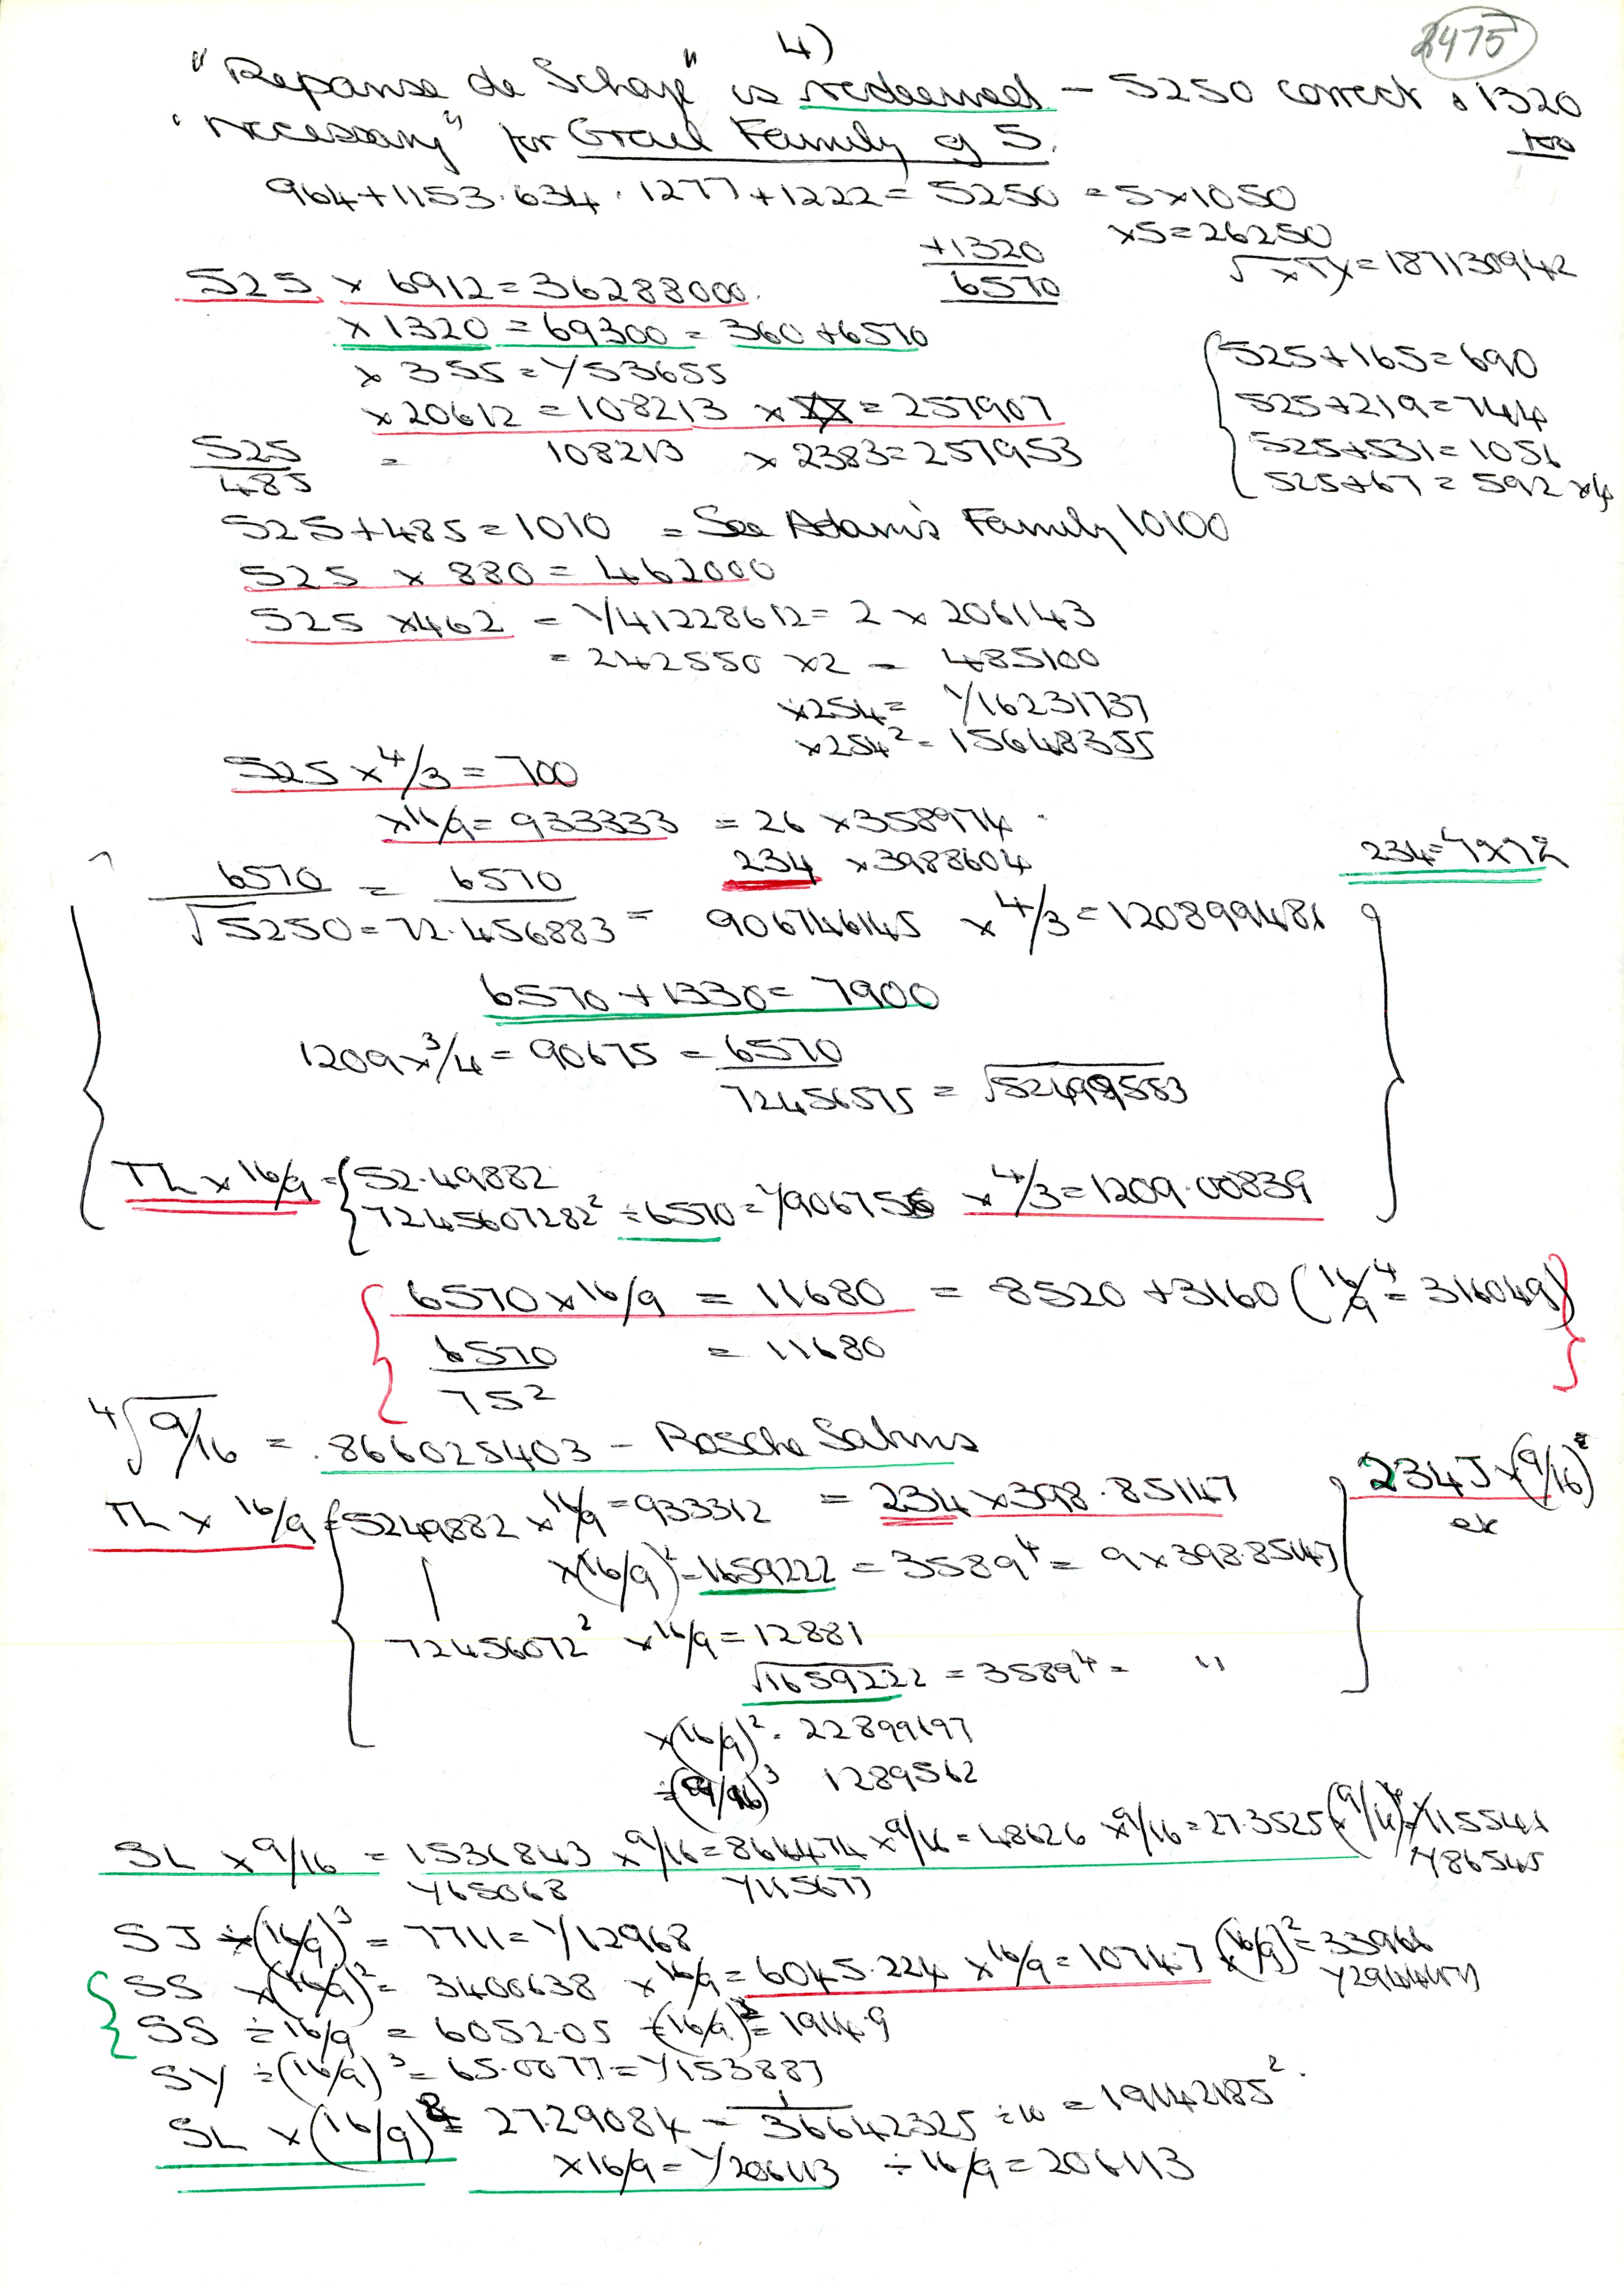 4)
2475
"Repanse de Schoye" is redeemed – 5250 correct & 1320
"necessary" for Grail Family of 5. too
964+1153.634.1277+1222= 5250 = 5×1050
×5=26250
+1320
√×TX=187130942
6570
525 × 6912=36288000.
×1320 = 69300 = 360+6570
× 355 = Y53655
×20612 =108213 × XX = 257907
525/485 = 108213 × 2383=257953
{525+165=690
525+219=744
525+531=1056
525+67=592 ×4
525+485=1010 = See Adam's Family 10100
525 × 880 = 462000
525 ×462 = Y41228612= 2 × 206143
= 242550 ×2 = 485100
×254= Y16231737
×254²= 15648355
525×4/3=700
×16/9=933333 = 26 ×358974
234 ×3988604
234=7×72
6570/√5250=72.456883 = 6570 = 906746145 ×4/3=120899481
6570+1330=7900
1209×3/4=90675 = 6570/72456575 = √52498553
TL×16/9={52.49882
7245607282² ÷6570=Y906756 ×4/3=1209.00839
{6570×16/9 = 11680 = 8520+3160(16/9⁴=316049)}
6570/75² = 11680
⁴√9/16 = .866025403 – Rosche Sahns
TL × 16/9 ={5249882 ×16/9=933312 = 234×398.85147
234J×(9/16)²
ex
×(16/9)²=1659222 = 3589⁴= 9×398.85147
72456072² ×16/9=12881
√1659222 = 3589⁴= "
×(16/9)². 22899197
÷(9/16)³ 1289562
SL ×9/16 = 1536843 ×9/16=864474×9/16=48626 ×9/16=27.3525
Y65068 Y115677 Y86545
SJ ÷(16/9)³ = 7711=Y12968
{SS ×(16/9)²= 3400638 ×16/9=6045.224 ×16/9=10747 ×(16/9)²=33966
SS ÷16/9 = 6052.05 ÷(16/9)³=1914.9
SY ÷(16/9)³=65.0077=Y153887
SL ×(16/9)⁸= 27.29084 = 1/36642325 ÷10 =19142185².
×16/9=Y206113 ÷16/9=206113